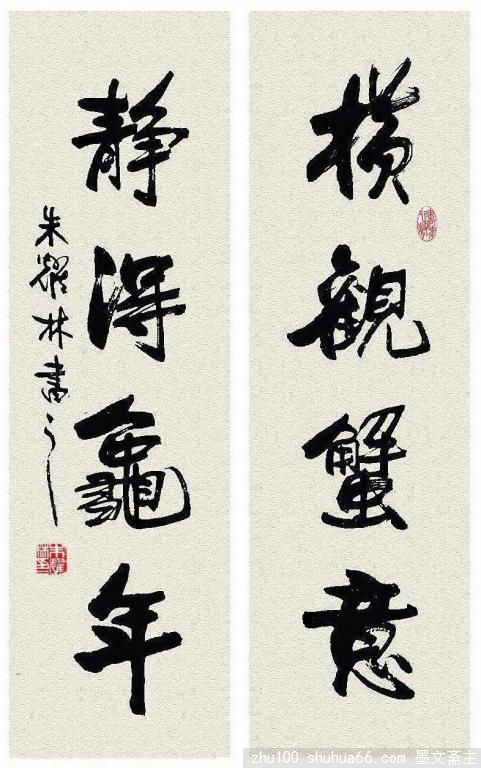 橫觀蟹意
靜得龜年
朱耀林書之
zhu100.shuhua66.com 墨文斋主